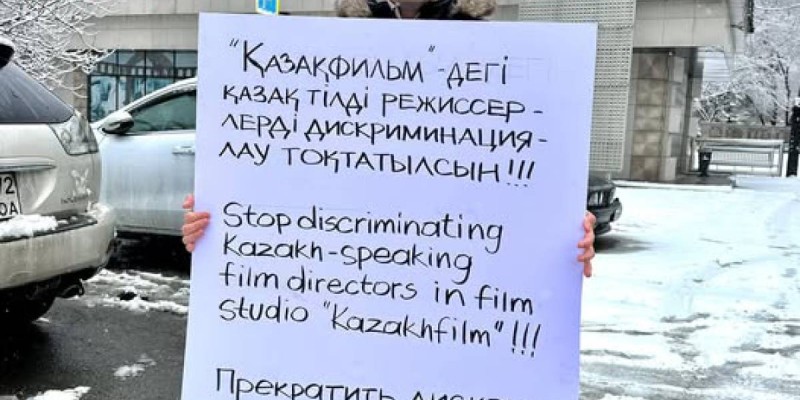 "ҚАЗАҚФИЛЬМ"-ДЕГІ
ҚАЗАҚ ТІЛДІ РЕЖИССЕР-
ЛЕРДІ ДИСКРИМИНАЦИЯ-
ЛАУ ТОҚТАТЫЛСЫН!!!
Stop discriminating
Kazakh-speaking
film directors in film
studio "Kazakhfilm"!!!
Прекратить